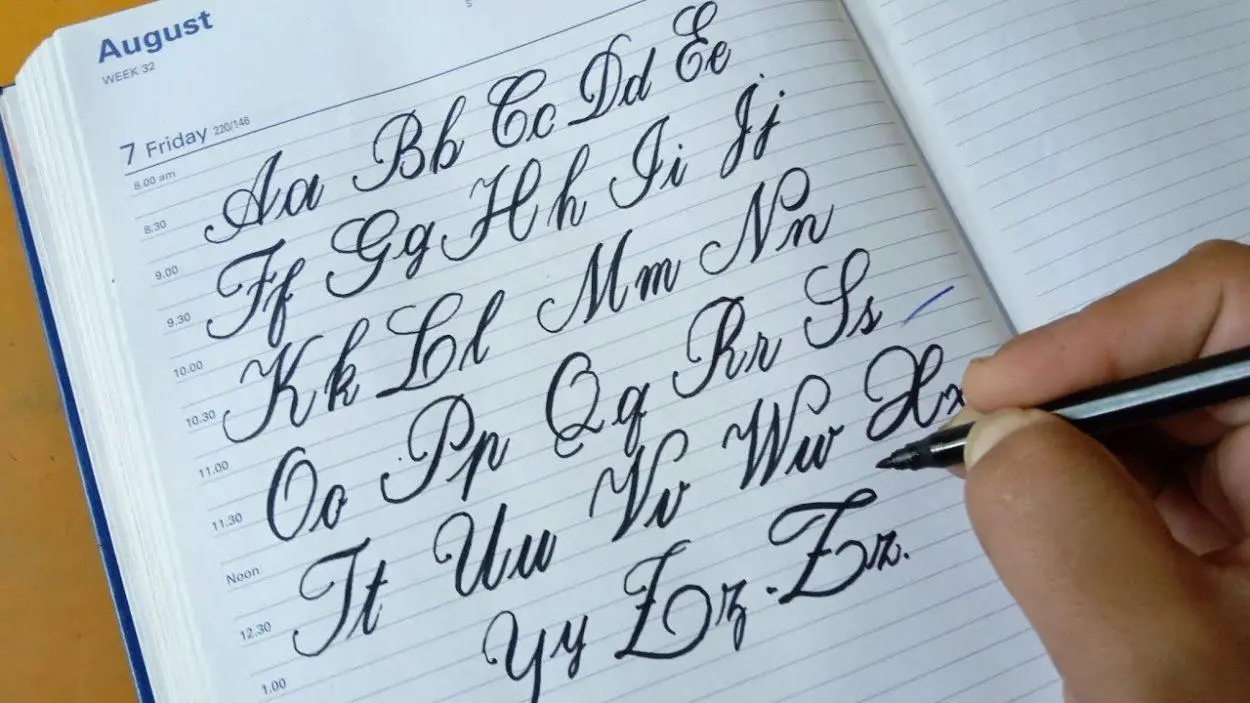 August
WEEK 32
7 Friday 220/146
8.00 am
Aa Bb Cc Dd Ee
8.30
9.00
Ff Gg Hh Ii Jj
9.30
10.00
Kk Ll Mm Nn
10.30
11.00
Oo Pp Qq Rr Ss
11.30
Noon
Tt Uu Vv Ww Xx
12.30
1.00
Yy Zz . Zz.